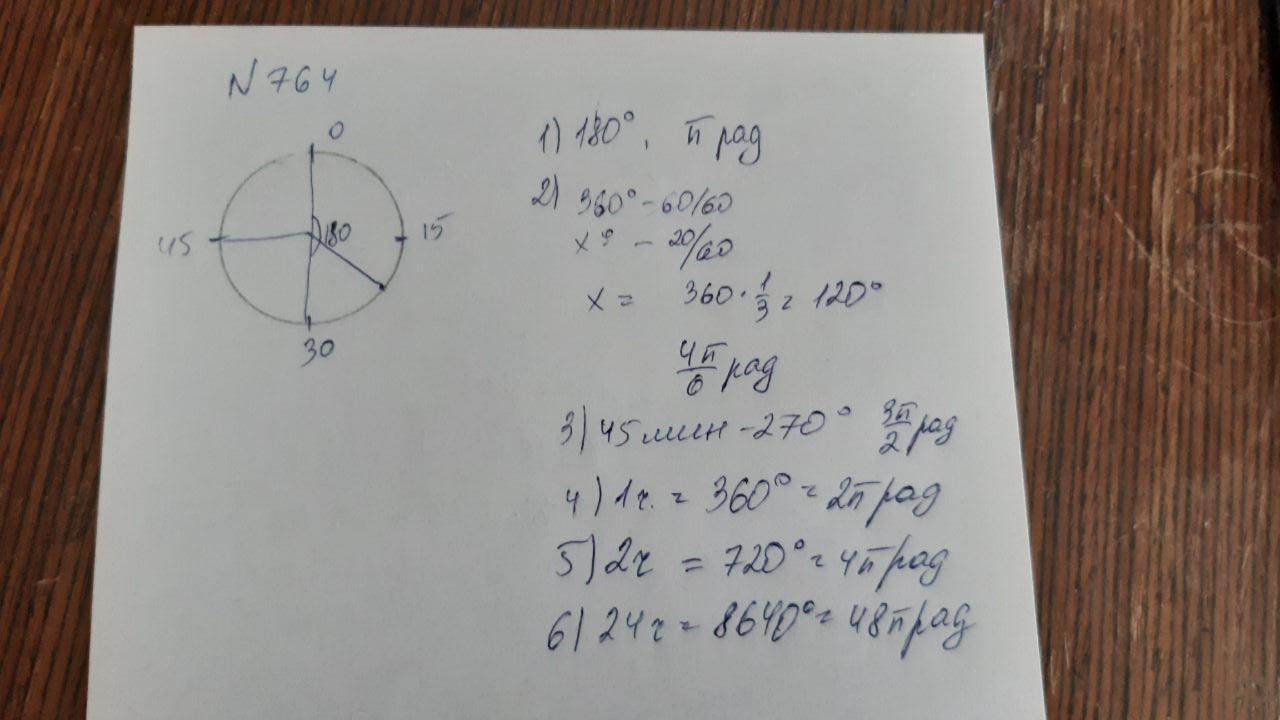 N 764
0
45
180
15
30
1) 180°, π рад
2) 360° - 60/60
x° - 20/60
x = 360·1/3 = 120°
4π/6 рад
3) 45 мин - 270° 3π/2 рад
4) 1ч. = 360° = 2π рад
5) 2ч = 720° = 4π рад
6) 24ч = 8640° = 48π рад